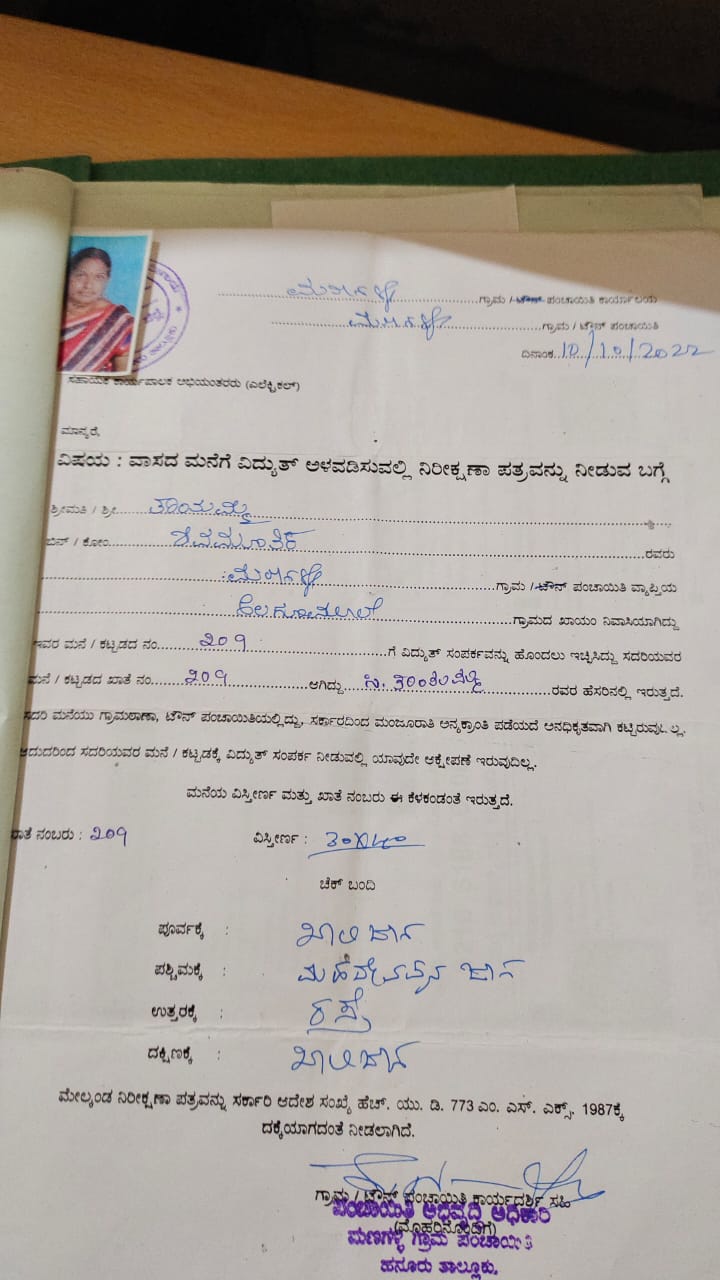 ಮಣಗಳ್ಳಿ ಗ್ರಾಮ / ಟೌನ್ ಪಂಚಾಯಿತಿ ಕಾರ್ಯಾಲಯ
ಮಣಗಳ್ಳಿ ಗ್ರಾಮ / ಟೌನ್ ಪಂಚಾಯಿತಿ
ದಿನಾಂಕ 10/10/2022
ಸಹಾಯಕ ಕಾರ್ಯಪಾಲಕ ಅಭಿಯಂತರರು (ಎಲೆಕ್ಟ್ರಿಕಲ್)
ಮಾನ್ಯರೆ,
ವಿಷಯ : ವಾಸದ ಮನೆಗೆ ವಿದ್ಯುತ್ ಅಳವಡಿಸುವಲ್ಲಿ ನಿರೀಕ್ಷಣಾ ಪತ್ರವನ್ನು ನೀಡುವ ಬಗ್ಗೆ
ಶ್ರೀಮತಿ / ಶ್ರೀ
ಬಿನ್ / ಕೋಂ ಶಿವಮೂರ್ತಿ ರವರು
ಮಣಗಳ್ಳಿ ಗ್ರಾಮ / ಟೌನ್ ಪಂಚಾಯಿತಿ ವ್ಯಾಪ್ತಿಯ
ಗ್ರಾಮದ ಖಾಯಂ ನಿವಾಸಿಯಾಗಿದ್ದು
ಇವರ ಮನೆ / ಕಟ್ಟಡದ ನಂ. ೨೦೧ ಗೆ ವಿದ್ಯುತ್ ಸಂಪರ್ಕವನ್ನು ಹೊಂದಲು ಇಚ್ಛಿಸಿದ್ದು ಸದರಿಯವರ
ಮನೆ / ಕಟ್ಟಡದ ಖಾತೆ ನಂ. ೨೦೧ ಆಗಿದ್ದು ರವರ ಹೆಸರಿನಲ್ಲಿ ಇರುತ್ತದೆ.
ಸದರಿ ಮನೆಯು ಗ್ರಾಮಠಾಣಾ, ಟೌನ್ ಪಂಚಾಯಿತಿಯಲ್ಲಿದ್ದು, ಸರ್ಕಾರದಿಂದ ಮಂಜೂರಾತಿ ಅನ್ಯಕ್ರಾಂತಿ ಪಡೆಯದೆ ಅನಧಿಕೃತವಾಗಿ ಕಟ್ಟಿರುವುದಿಲ್ಲ.
ಆದುದರಿಂದ ಸದರಿಯವರ ಮನೆ / ಕಟ್ಟಡಕ್ಕೆ ವಿದ್ಯುತ್ ಸಂಪರ್ಕ ನೀಡುವಲ್ಲಿ ಯಾವುದೇ ಆಕ್ಷೇಪಣೆ ಇರುವುದಿಲ್ಲ.
ಮನೆಯ ವಿಸ್ತೀರ್ಣ ಮತ್ತು ಖಾತೆ ನಂಬರು ಈ ಕೆಳಕಂಡಂತೆ ಇರುತ್ತದೆ.
ಖಾತೆ ನಂಬರು : ೨೦೧ ವಿಸ್ತೀರ್ಣ : ೩೦X೪೦
ಚೆಕ್ ಬಂದಿ
ಪೂರ್ವಕ್ಕೆ : ಖಾಲಿ ಜಾಗ
ಪಶ್ಚಿಮಕ್ಕೆ : ಜಾಗ
ಉತ್ತರಕ್ಕೆ : ರಸ್ತೆ
ದಕ್ಷಿಣಕ್ಕೆ : ಖಾಲಿ ಜಾಗ
ಮೇಲ್ಕಂಡ ನಿರೀಕ್ಷಣಾ ಪತ್ರವನ್ನು ಸರ್ಕಾರಿ ಆದೇಶ ಸಂಖ್ಯೆ ಹೆಚ್. ಯು. ಡಿ. 773 ಎಂ. ಎಸ್. ಎಕ್ಸ್. 1987ಕ್ಕೆ
ದಕ್ಕೆಯಾಗದಂತೆ ನೀಡಲಾಗಿದೆ.
ಗ್ರಾಮ / ಟೌನ್ ಪಂಚಾಯಿತಿ ಕಾರ್ಯದರ್ಶಿ ಸಹಿ
ಪಂಚಾಯಿತಿ ಅಭಿವೃದ್ಧಿ ಅಧಿಕಾರಿ
(ಮೊಹರಿನೊಂದಿಗೆ)
ಮಣಗಳ್ಳಿ ಗ್ರಾಮ ಪಂಚಾಯಿತಿ
ಹನೂರು ತಾಲ್ಲೂಕು.